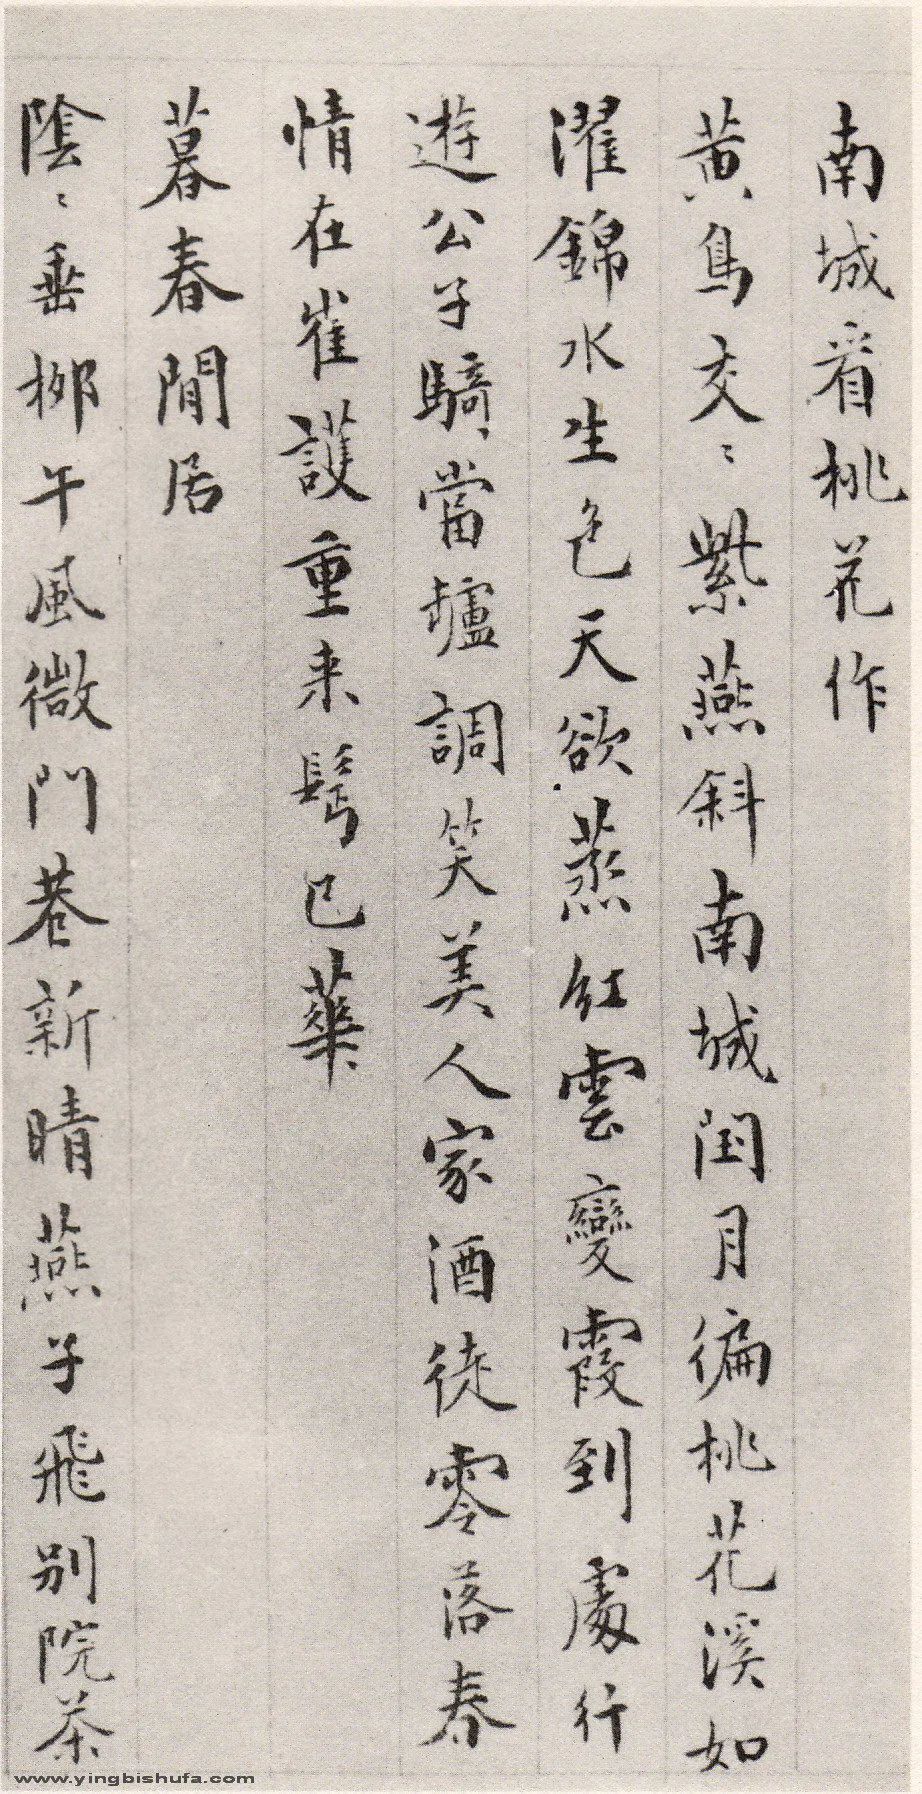 南城看桃花作
黃鳥交〻紫燕斜南城閏月徧桃花溪如
濯錦水生色天欲蒸紅雲變霞到處行
遊公子騎當壚調笑美人家酒徒零落春
情在崔護重来鬢已華
暮春閒居
陰〻垂柳午風微門巷新晴燕子飛別院茶
www.yingbishufa.com